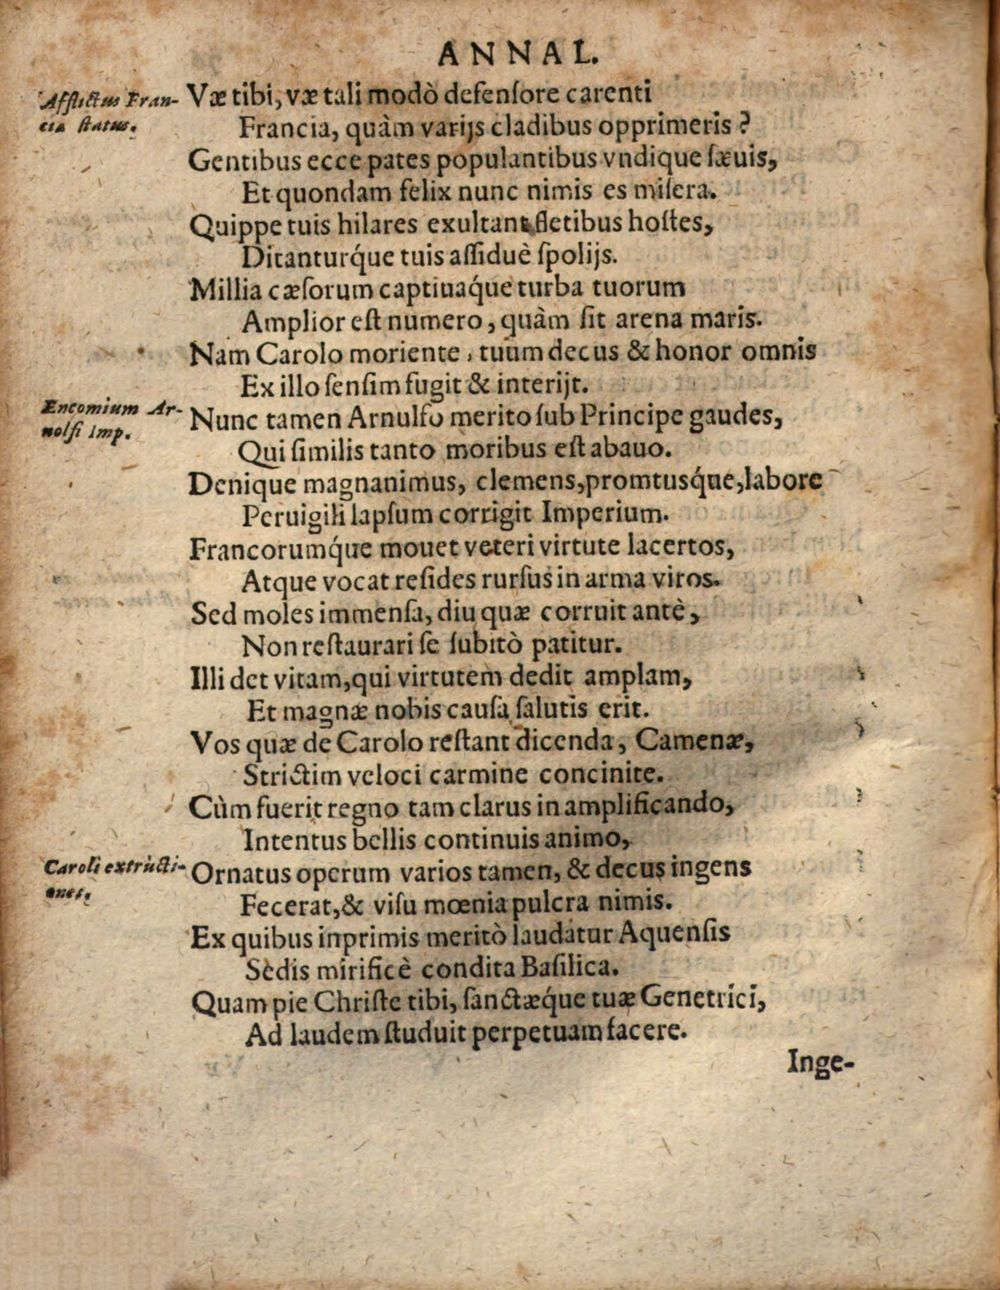 ANNAL.
Afflictus Fran-
ciæ status.
Væ tibi, væ tali modò defenſore carenti
Francia, quàm varijs cladibus opprimeris ?
Gentibus ecce pates populantibus vndique ſæuis,
Et quondam felix nunc nimis es miſera.
Quippe tuis hilares exultant fletibus hoſtes,
Ditanturq́ue tuis aſſiduè ſpolijs.
Millia cæſorum captiuaq́ue turba tuorum
Amplior eſt numero, quàm ſit arena maris.
Nam Carolo moriente, tuum decus & honor omnis
Ex illo ſenſim fugit & interijt.
Encomium Ar-
nolfi Imp.
Nunc tamen Arnulfo merito ſub Principe gaudes,
Qui ſimilis tanto moribus eſt abauo.
Denique magnanimus, clemens, promtusq́ue, labore
Peruigili lapſum corrigit Imperium.
Francorumq́ue mouet veteri virtute lacertos,
Atque vocat reſides rurſus in arma viros.
Sed moles immenſa, diu quæ corruit antè,
Non reſtaurari ſe ſubitò patitur.
Illi det vitam, qui virtutem dedit amplam,
Et magnæ nobis cauſa ſalutis erit.
Vos quæ de Carolo reſtant dicenda, Camenæ,
Strictim veloci carmine concinite.
Cùm fuerit regno tam clarus in amplificando,
Intentus bellis continuis animo,
Caroli extructi-
ones.
Ornatus operum varios tamen, & decus ingens
Fecerat, & viſu mœnia pulcra nimis.
Ex quibus inprimis meritò laudatur Aquenſis
Sedis mirificè condita Baſilica.
Quam pie Chriſte tibi, ſanctæq́ue tuæ Genetrici,
Ad laudem ſtuduit perpetuam facere.
Inge-